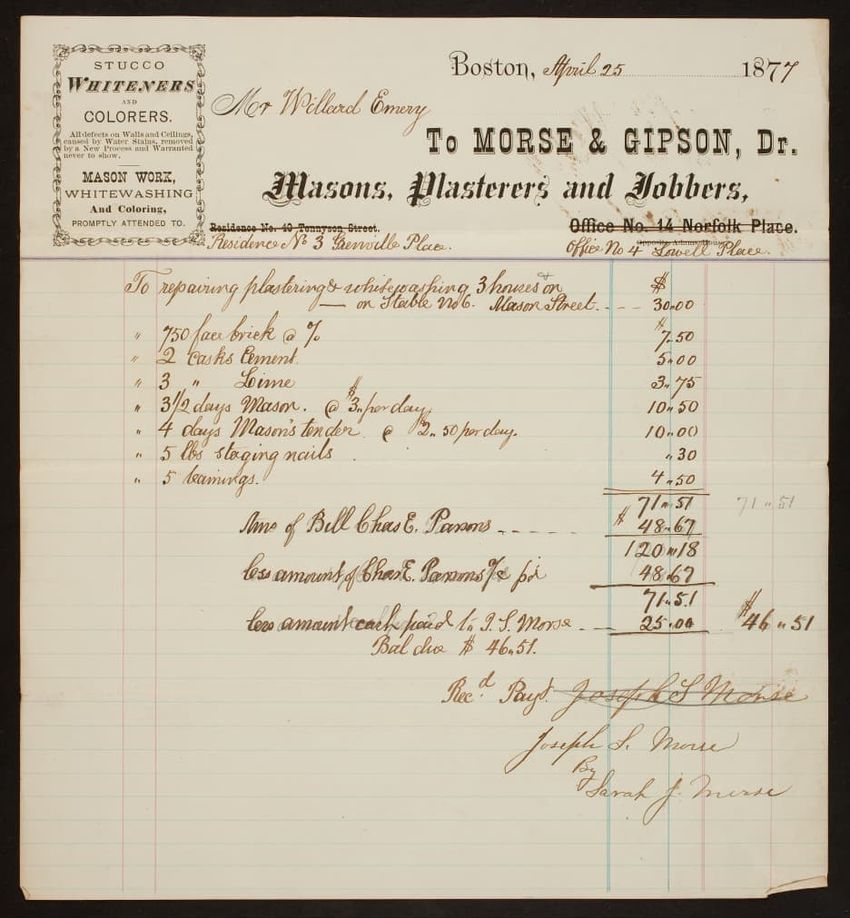 STUCCO
WHITENERS
AND
COLORERS.
All defects on Walls and Ceilings,
caused by Water Stains, removed
by a New Process and Warranted
never to show.
MASON WORK,
WHITEWASHING
And Coloring,
PROMPTLY ATTENDED TO.
Boston, April 25 1877
Mr Willard Emery
To MORSE & GIPSON, Dr.
Masons, Plasterers and Jobbers,
Residence No. 40 Tennyson Street. Office No. 14 Norfolk Place.
Residence No 3 Grenville Place. Office No 4 Lowell Place.
To repairing plastering & whitewashing 3 houses on $
— on Stable No 6. Mason Street. 30.00
" 750 face brick @ % $ 7.50
" 2 casks Cement. 5.00
" 3 " Lime 3.75
" 3 1/2 days Mason. @ $3,, per day, 10.50
" 4 days Mason's tender @ $2.50 per day. 10.00
" 5 lbs staging nails " 30
" 5 4.50
71.51 71 " 51
Am of Bill Chas E. Parsons $ 48.67
120.18
less amount of Chas E. Parsons % pd 48.67
71.51
less amount cash paid to J. S. Morse 25.00 $46 " 51
Bal due $ 46.51.
Rec.d Payt. Joseph S Morse
Joseph S. Morse
By
Sarah J. Morse